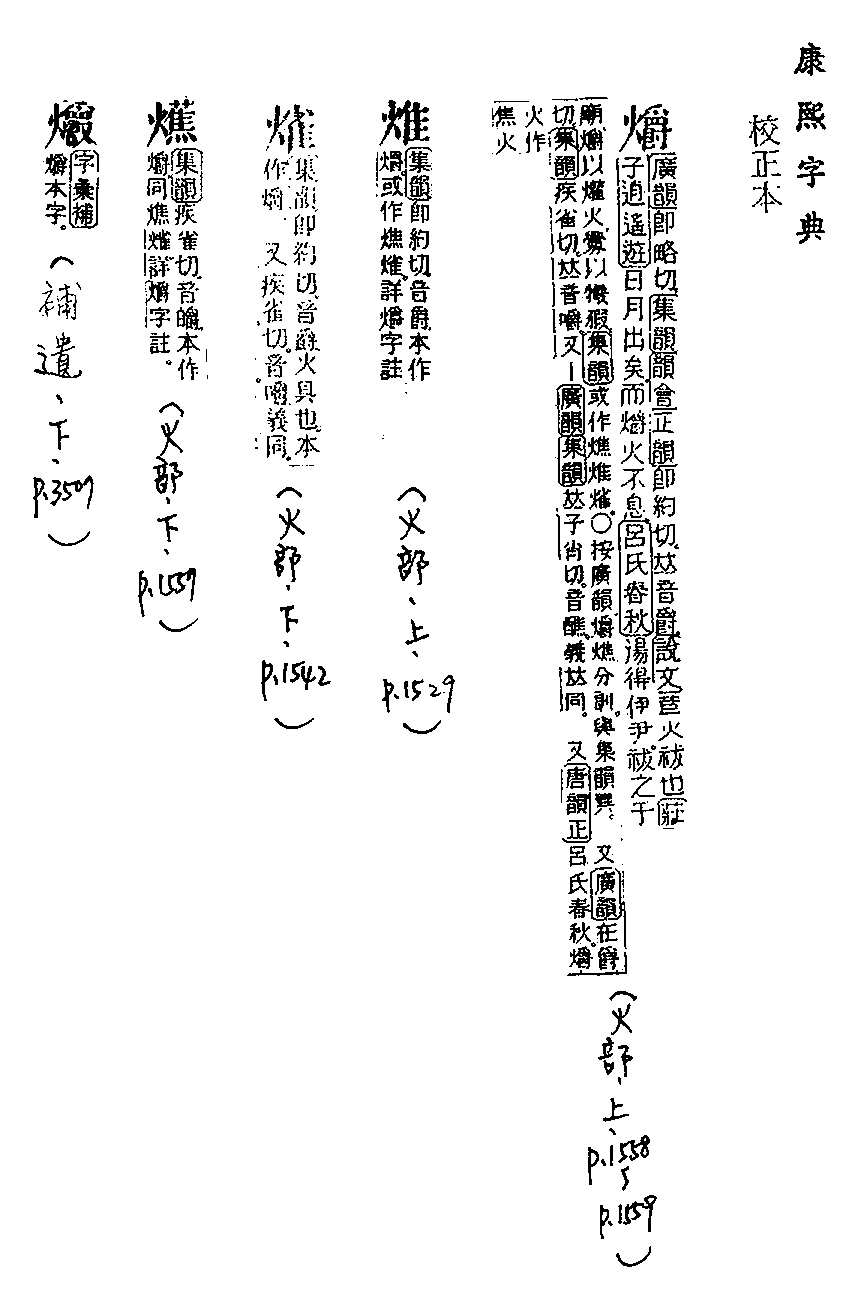 康熙字典
校正本
爝
廣韻即略切集韻韻會正韻即約切𠀤音爵說文苣火祓也莊
子逍遙遊日月出矣而爝火不息呂氏春秋湯得伊尹祓之于
廟爝以爟火釁以犧猳集韻或作燋㷅㸈○按廣韻爝燋分訓與集韻異 又廣韻在爵
切集韻疾雀切𠀤音嚼又廣韻集韻𠀤子肖切音醮義𠀤同 又唐韻正呂氏春秋爝
火作
焦火
(火部、上、
p.1558
p.1559)
㷅
集韻即約切音爵本作
爝或作燋詳爝字註
(火部、上、
p.1529)
集韻即約切音爵火具也本
作爝 又疾雀切音嚼義同
(火部、下、
p.1542)
集韻疾雀切音皭本作
爝同燋詳爝字註
(火部、下、
p.1559)
字彙補
爝本字
(補遺、下、
p.3509)